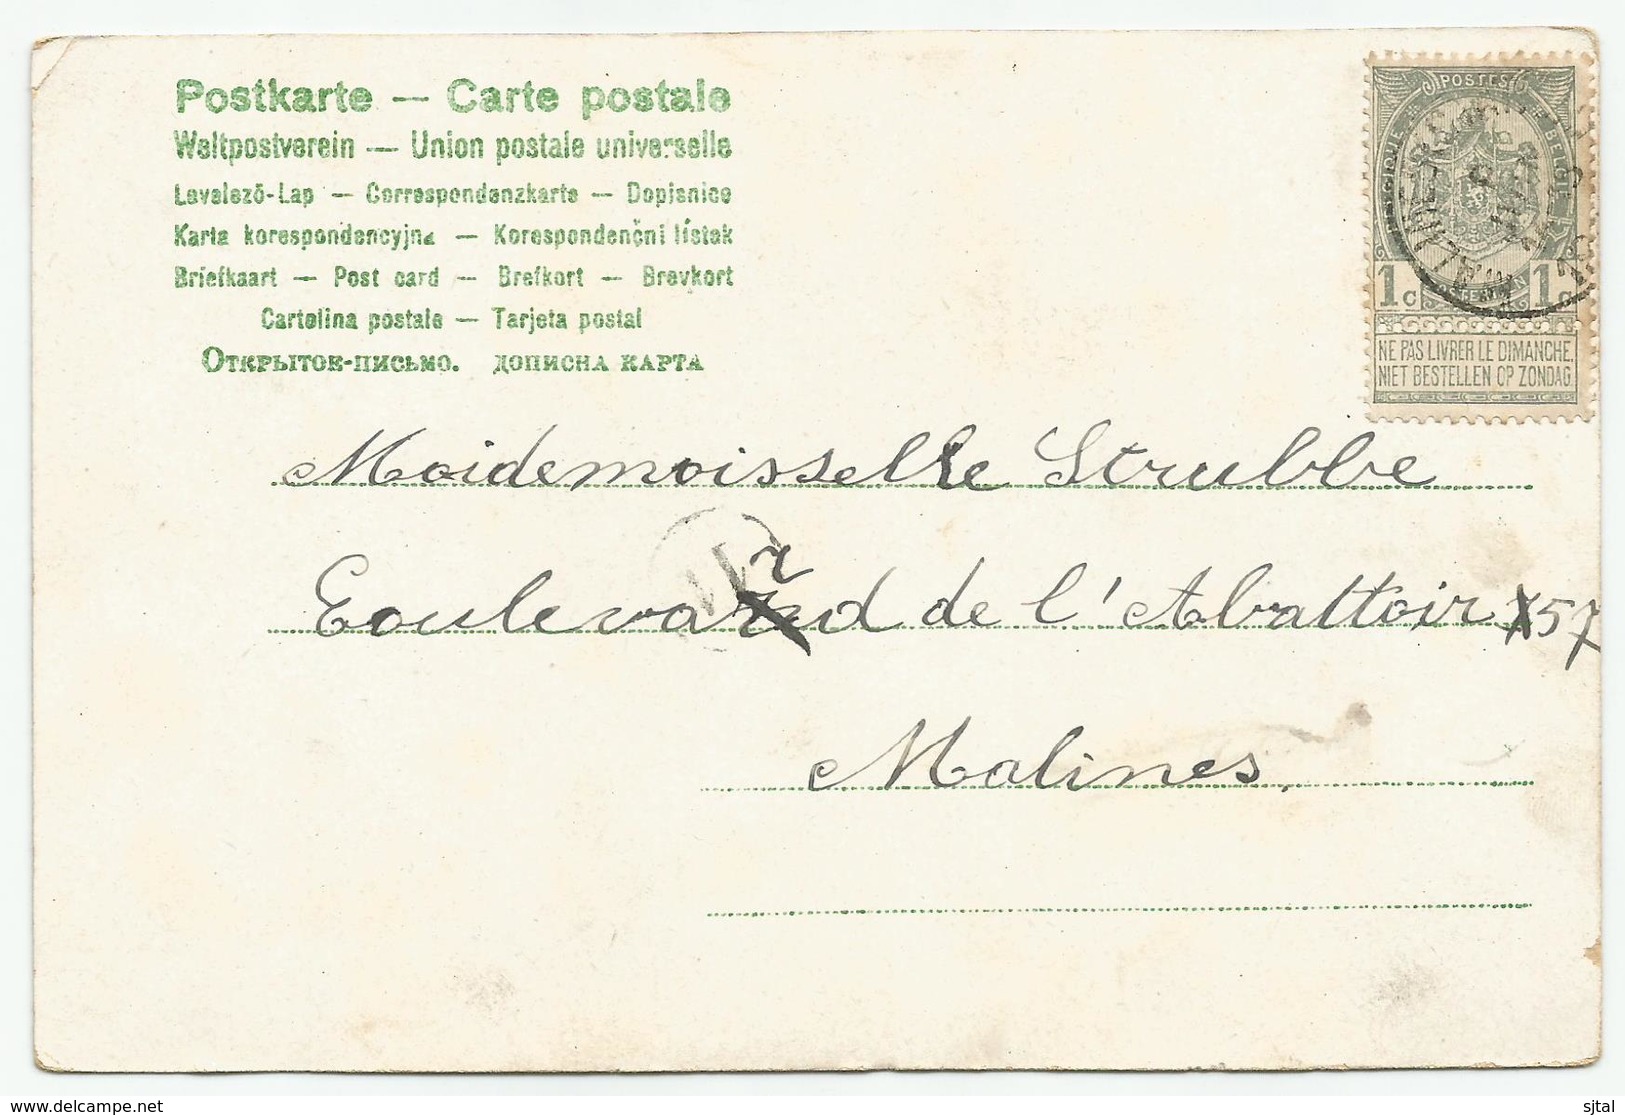 Postkarte — Carte postale
Weltpostverein — Union postale universelle
Levelező-Lap — Correspondenzkarte — Dopisnice
Karta korespondencyjna — Korespondenční lístek
Briefkaart — Post card — Brefkort — Brevkort
Cartolina postale — Tarjeta postal
Открытое-письмо. дописна карта
POSTES
1c 1c
NE PAS LIVRER LE DIMANCHE.
NIET BESTELLEN OP ZONDAG.
Moidemoisselle Strubbe
Boulevard de l'Abattoir 57
Malines
www.delcampe.net
sjtal